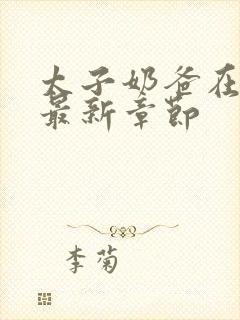 太子奶爸在
最新章节
李菊